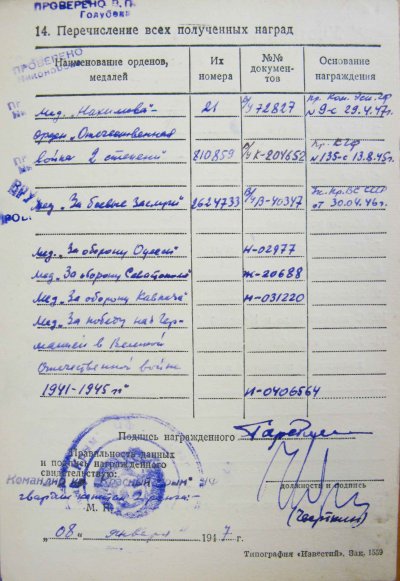 ПРОВЕРЕНО
14. Перечисление всех полученных наград
ПРОВЕРЕНО
Наименование орденов, медалей
Их номера
№№ документов
Основание награждения
Мед. „Нахимова“ 21 72827
№ 9-с 29.4.47г.
Орден „Отечественная
война 2 степени“ 810859 К-204652 № 135-с 13.8.45г.
Мед. „За боевые заслуги“ 2624733 В-40347
от 30.04.46г.
Мед. „За оборону Одессы“ Н-02977
Мед. „За оборону Севастополя“ Ж-20688
Мед. „За оборону Кавказа“ Н-031220
Мед. „За победу над Гер-
манией в Великой
Отечественной войне
1941-1945 гг“ Н-0406564
Подпись награжденного
Правильность данных
и подпись награжденного
свидетельствую:
Командир кр. „Красный Крым“ ЧФ
гвардии капитан 2 ранга
М. П.
должность и подпись
„08 „ января“ 1947 г.
Типография «Известий». Зак. 1559